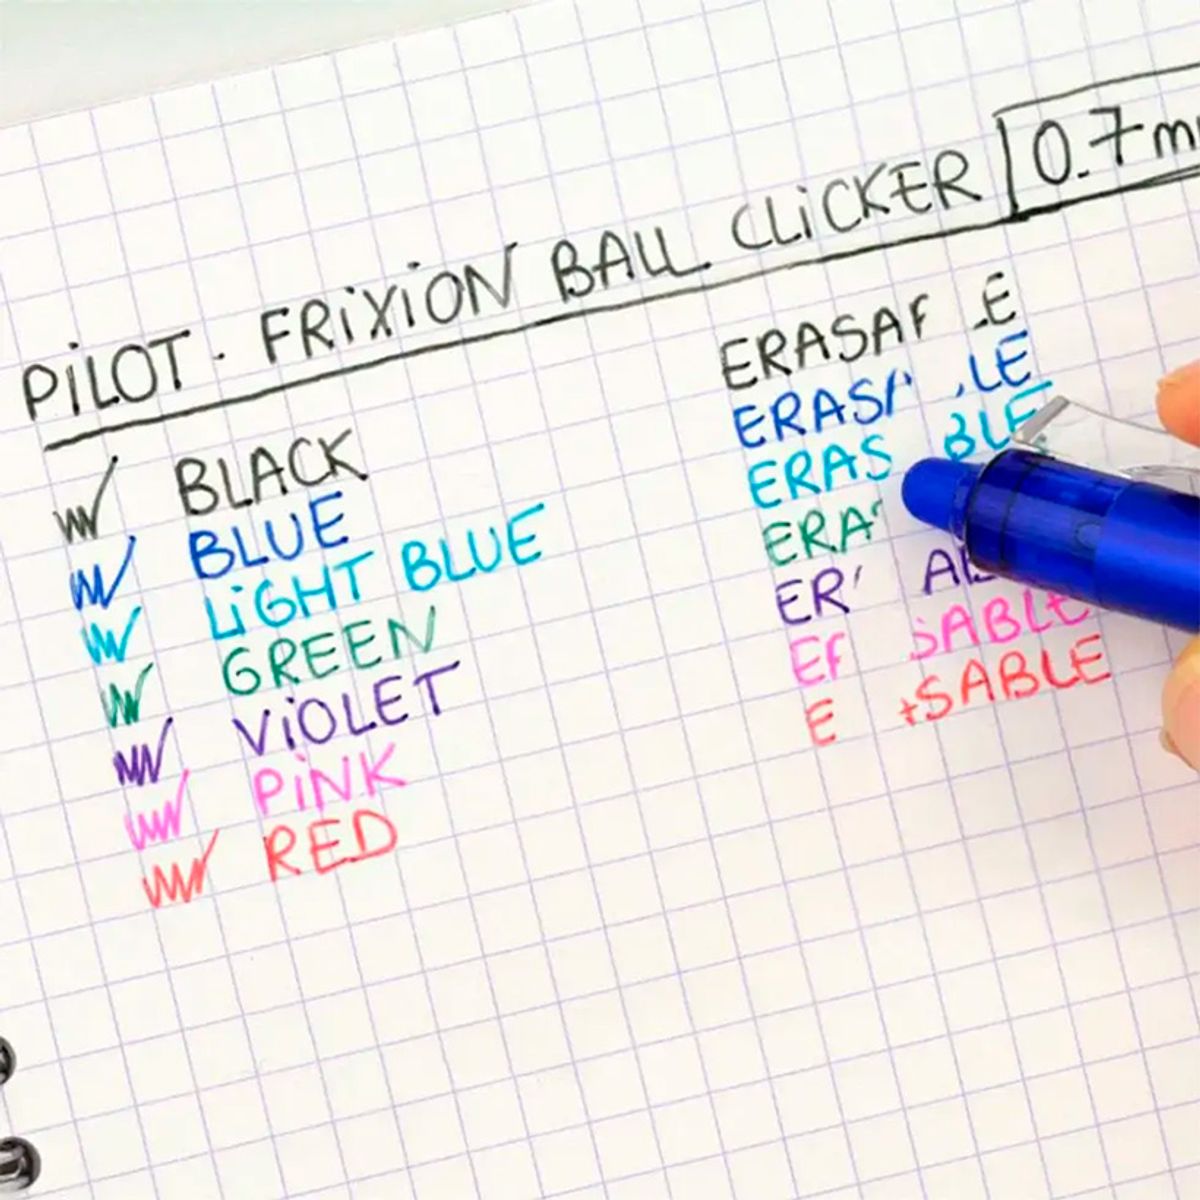 PiLOT. FRiXiON BALL CLiCKER 0.7 m
BLACK
BLUE
LiGHT BLUE
GREEN
ViOLET
PiNK
RED
ERASA E
ERAS LE
ERAS BLE
ERA
ER AB
E SABLE
E SABLE